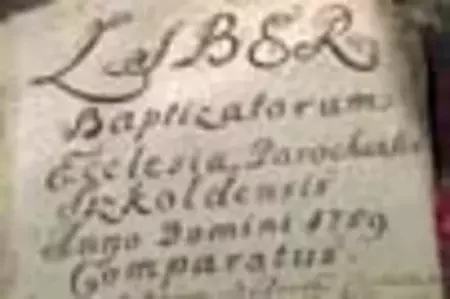 LIBER
Baptizatorum
Ecclesia Parochialis
Iszkoldensis
Anno Domini 1759
Comparatus